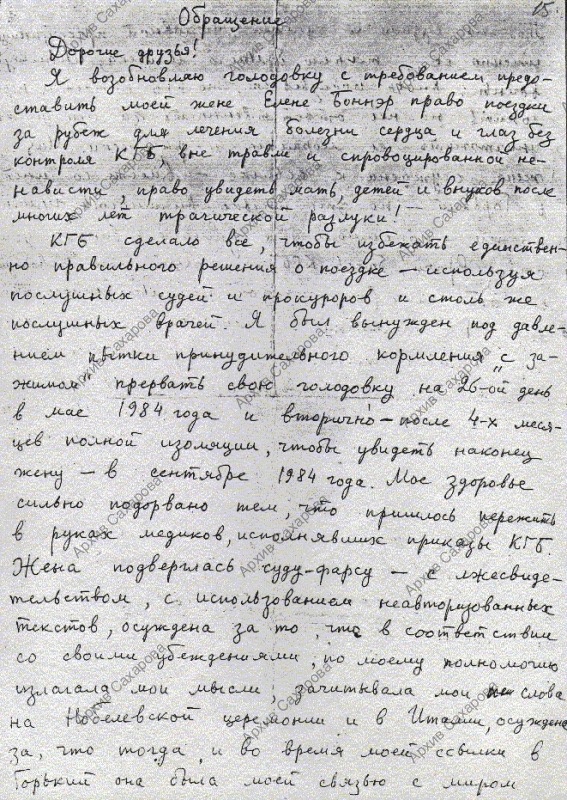 15.
Обращение
Дорогие друзья!
Я возобновляю голодовку с требованием предо-
ставить моей жене Елене Боннэр право поездки
за рубеж для лечения болезни сердца и глаз без
контроля КГБ, вне травли и спровоцированной не-
нависти, право увидеть мать, детей и внуков после
многих лет трагической разлуки!
КГБ сделало все, чтобы избежать единствен-
но правильного решения о поездке – используя
послушных судей и прокуроров и столь же
послушных врачей. Я был вынужден под давле-
нием пытки принудительного кормления „с за-
жимом" прервать свою голодовку на 26-ой день
в мае 1984 года и вторично – после 4-х меся-
цев полной изоляции, чтобы увидеть наконец
жену – в сентябре 1984 года. Мое здоровье
сильно подорвано тем, что пришлось пережить
в руках медиков, исполнявших приказы КГБ.
Жена подверглась суду-фарсу – с лжесвиде-
тельством, с использованием неавторизованных
текстов, осуждена за то, что в соответствии
со своими убеждениями, по моему полномочию
излагала мои мысли, зачитывала мои слова
на Нобелевской церемонии и в Италии, осуждена
за, что тогда, и во время моей ссылки в
Горький она была моей связью с миром
Архив Сахарова